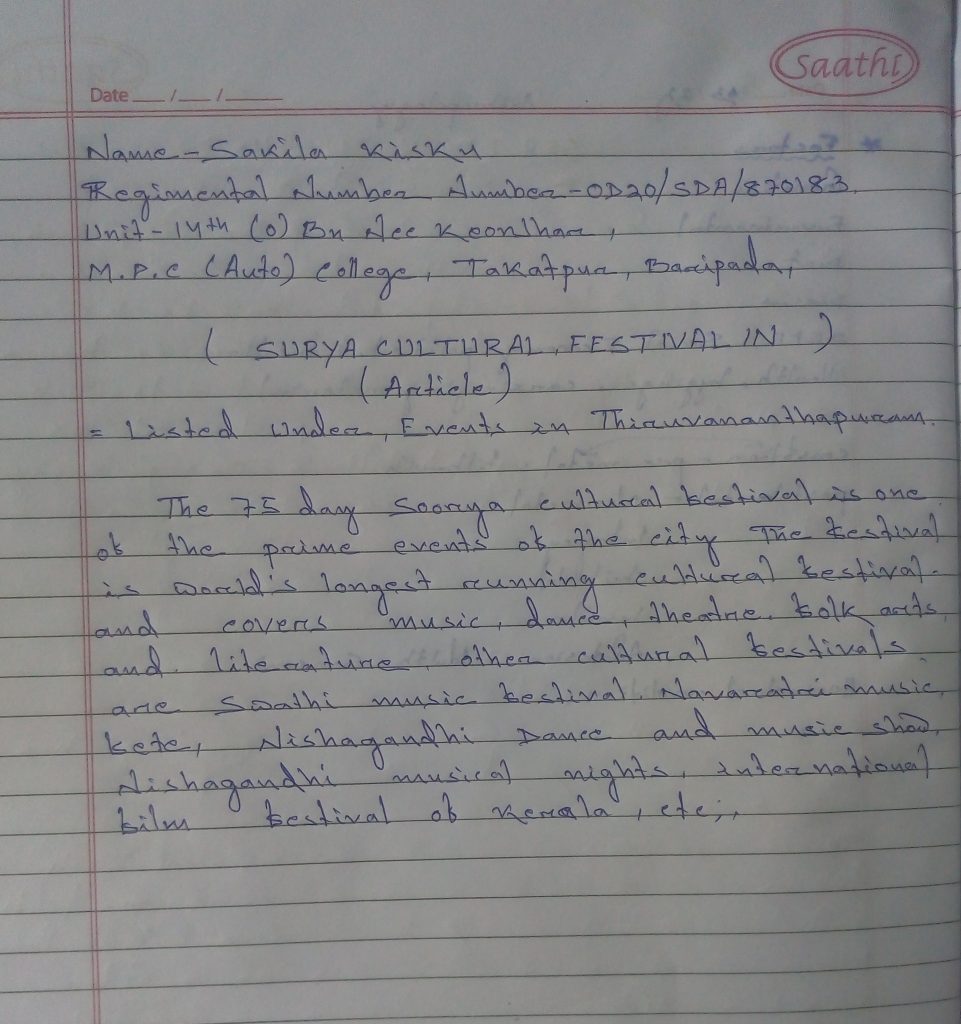 Saathi
Date __/__/____
Name - Sakila Kisku
Regimental Number Number - OD20/SDA/870183.
Unit - 14th (O) Bn Ncc Keonjhar,
M.P.C (Auto) College, Takatpur, Baripada,
( SURYA CULTURAL, FESTIVAL IN )
( Article )
= Listed Under, Events in Thiruvananthapuram.
The 75 day Soorya cultural festival is one
of the prime events of the city The festival
is world's longest running cultural festival.
and covers music, dance, theatre, folk arts,
and literature, other cultural festivals
are Swathi music festival, Navaratri music,
fete, Nishagandhi Dance and music show,
Nishagandhi musical nights, international
film festival of Kerala, etc;,